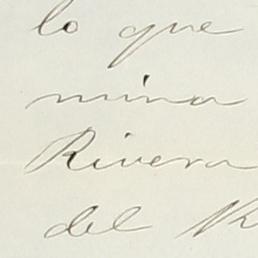 lo que
mina
Rivera
del